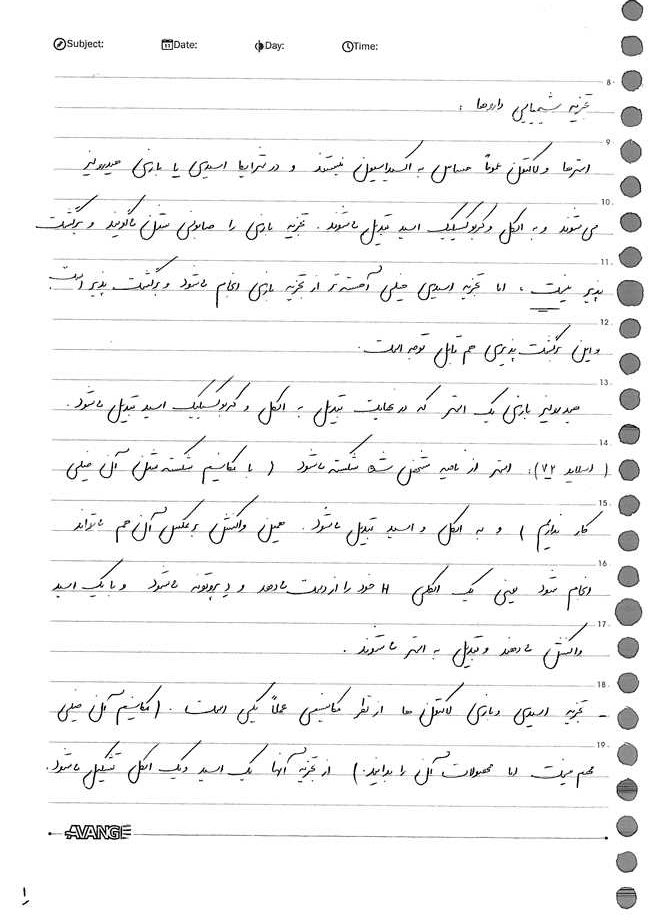 Subject: Date: Day: Time:
8
تجزیه شیمیایی داروها :
9
استرها و لاکتون عموماً حساس به اکسیداسیون نیستند و در شرایط اسیدی یا بازی هیدرولیز
10
می شوند و به الکل و کربوکسیلیک اسید تبدیل میشوند. تجزیه بازی را صابونی شدن میگویند و برگشت
11
پذیر نیست ، اما تجزیه اسیدی خیلی آهسته تر از تجزیه بازی انجام میشود و برگشت پذیر است
12
و این برگشت پذیری هم قابل توجه است.
13
هیدرولیز بازی یک استر که در نهایت تبدیل به الکل و کربوکسیلیک اسید تبدیل میشود.
14
( اسلاید ۷۲): استر از ناحیه مشخص شده شکسته میشود ( با مکانیسم شکسته شدن آن خیلی
15
کار نداریم ) و به الکل و اسید تبدیل میشود. همین واکنش برعکس آن هم میتواند
16
انجام شود یعنی یک الکلی H خود را از دست میدهد و دپروتونه میشود و با یک اسید
17
واکنش میدهند و تبدیل به استر میشوند.
18
- تجزیه اسیدی و بازی لاکتون ها از نظر مکانیسمی عملاً یکی است. (مکانیسم آن خیلی
19
مهم نیست اما محصولات آن را بدانید.) از تجزیه آنها یک اسید و یک الکل تشکیل میشود.
AVANGE
۱